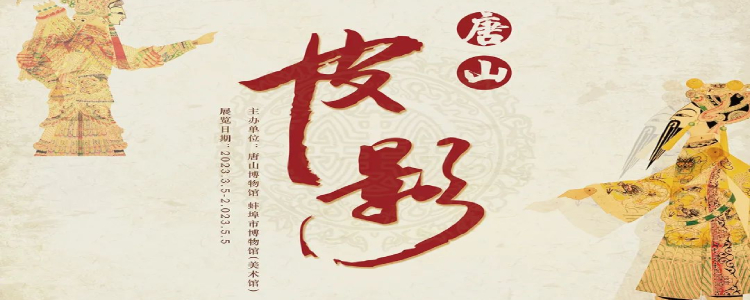 唐山
皮影
主办单位：唐山博物馆 蚌埠市博物馆(美术馆)
展览日期：2023.3.5-2.023.5.5